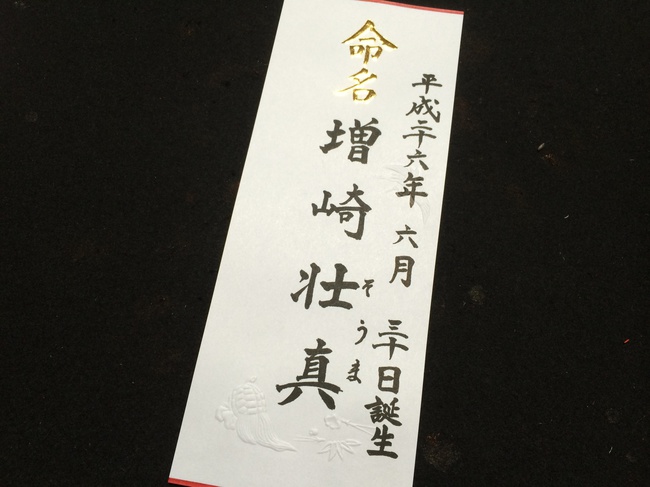 平成二十六年 六月 三十日誕生
命名
増崎壮真
そうま